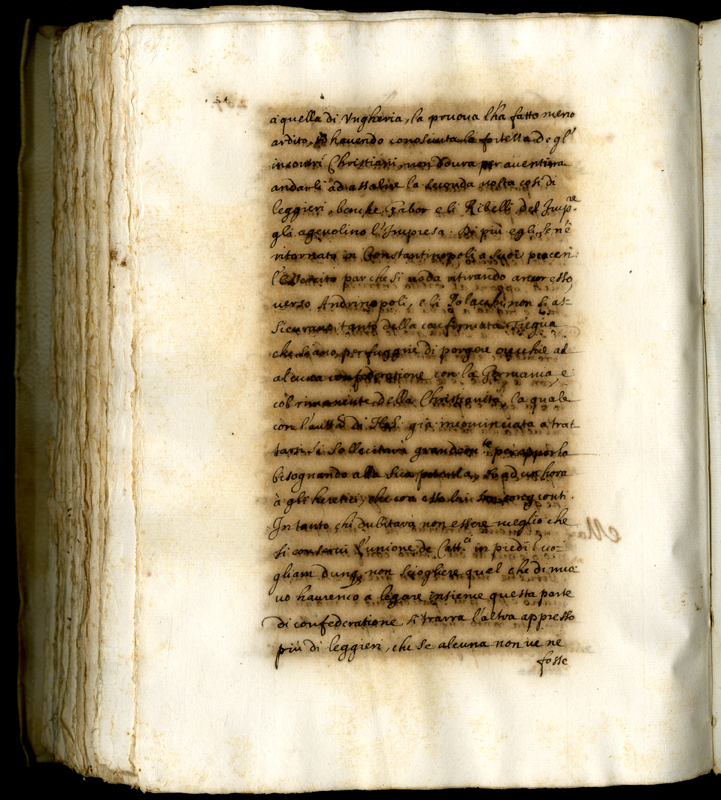 a quella di Vngheria, la pruoua l'ha fatto meno
ardito, havendo conosciuta la fortezza degl'
incontri Christiani, non dourà per auentura
andarli ad assalire la seconda uolta così di
leggieri, benche Gabor e li Ribelli del Imp.re
gli ageuolino l'Impresa. Di più egli se n'è
ritornato in Constantinopoli a suoi piaceri
l'Essercito par che si uada ritirando anch'esso
uerso Andrinopoli, e li Polacchi non si as-
sicurano tanto della confermata Tregua
che siano per fuggire di porgere orecchie ad
alcuna confederatione con la Germania, e
col rimanente della Christianità, la quale
con l'autt.à di già incominciata a trat
tarsi si solleciterà grandem.te per opporla
bisognando alla Sua potenza, ad un hora
à gli heretici, che con esso lui congionti.
In tanto chi dubitarà non essere meglio che
si conserui l'unione de Catt.ci in piedi, uo-
gliam dunq non sciogliere quel che di nuo
uo hauremo a legare insieme questa parte
di confederatione si trarrà l'altra appresso
più di leggieri, che se alcuna non ue ne
fosse